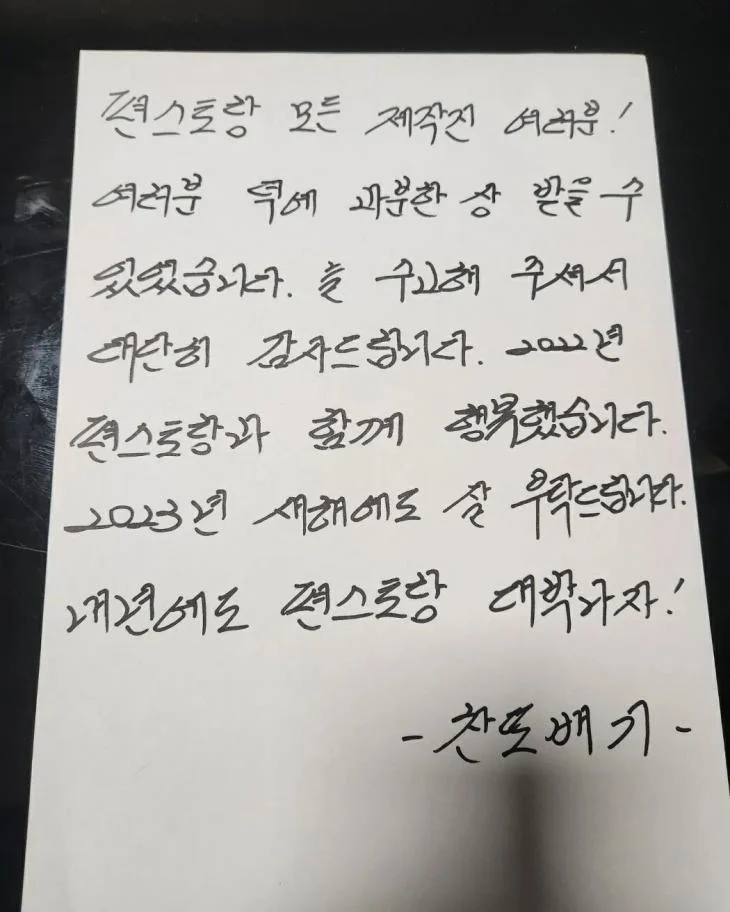 편스토랑 모든 제작진 여러분!
여러분 덕에 과분한 상 받을 수
있었습니다. 늘 수고해 주셔서
대단히 감사드립니다. 2022년
편스토랑과 함께 행복했습니다.
2023년 새해에도 잘 부탁드립니다.
내년에도 편스토랑 대박나자!
- 찬또배기 -